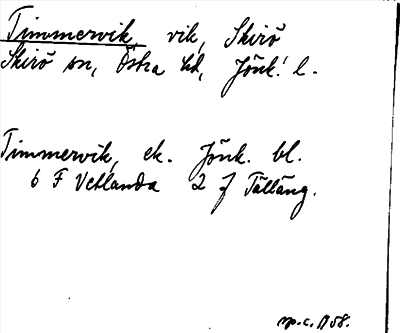 Timmervik, vik, Skirö
Skirö sn, Östra hd, Jönk. l.
Timmervik, ek. Jönk. bl.
6 F Vetlanda 2 J Tälläng.
1958.